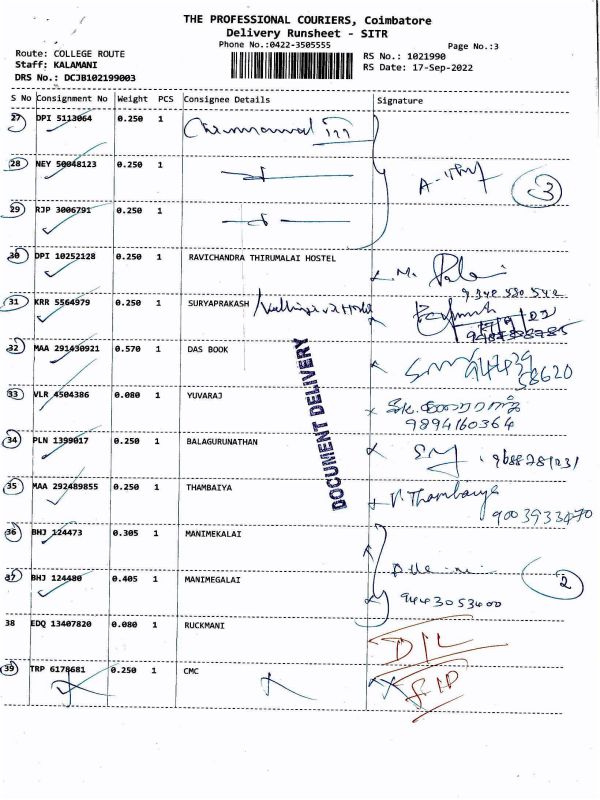 THE PROFESSIONAL COURIERS, Coimbatore
Delivery Runsheet - SITR
Phone No.:0422-3505555
Page No.:3
Route: COLLEGE ROUTE
Staff: KALAMANI
DRS No.: DCJB102199003
RS No.: 1021990
RS Date: 17-Sep-2022
S No Consignment No Weight PCS Consignee Details Signature
27 DPI 5113064 0.250 1
28 NEY 50048123 0.250 1
29 RJP 3006791 0.250 1
3
30 DPI 10252128 0.250 1 RAVICHANDRA THIRUMALAI HOSTEL M.
31 KRR 5564979 0.250 1 SURYAPRAKASH
32 MAA 291430921 0.570 1 DAS BOOK
DOCUMENT DELIVERY
33 VLR 4504386 0.080 1 YUVARAJ
9894160364
34 PLN 1399017 0.250 1 BALAGURUNATHAN
35 MAA 292489855 0.250 1 THAMBAIYA Thambaiya
9003933470
36 BHJ 124473 0.305 1 MANIMEKALAI
37 BHJ 124480 0.405 1 MANIMEGALAI 2
9443053400
38 EDQ 13407820 0.080 1 RUCKMANI D/L
39 TRP 6178681 0.250 1 CMC